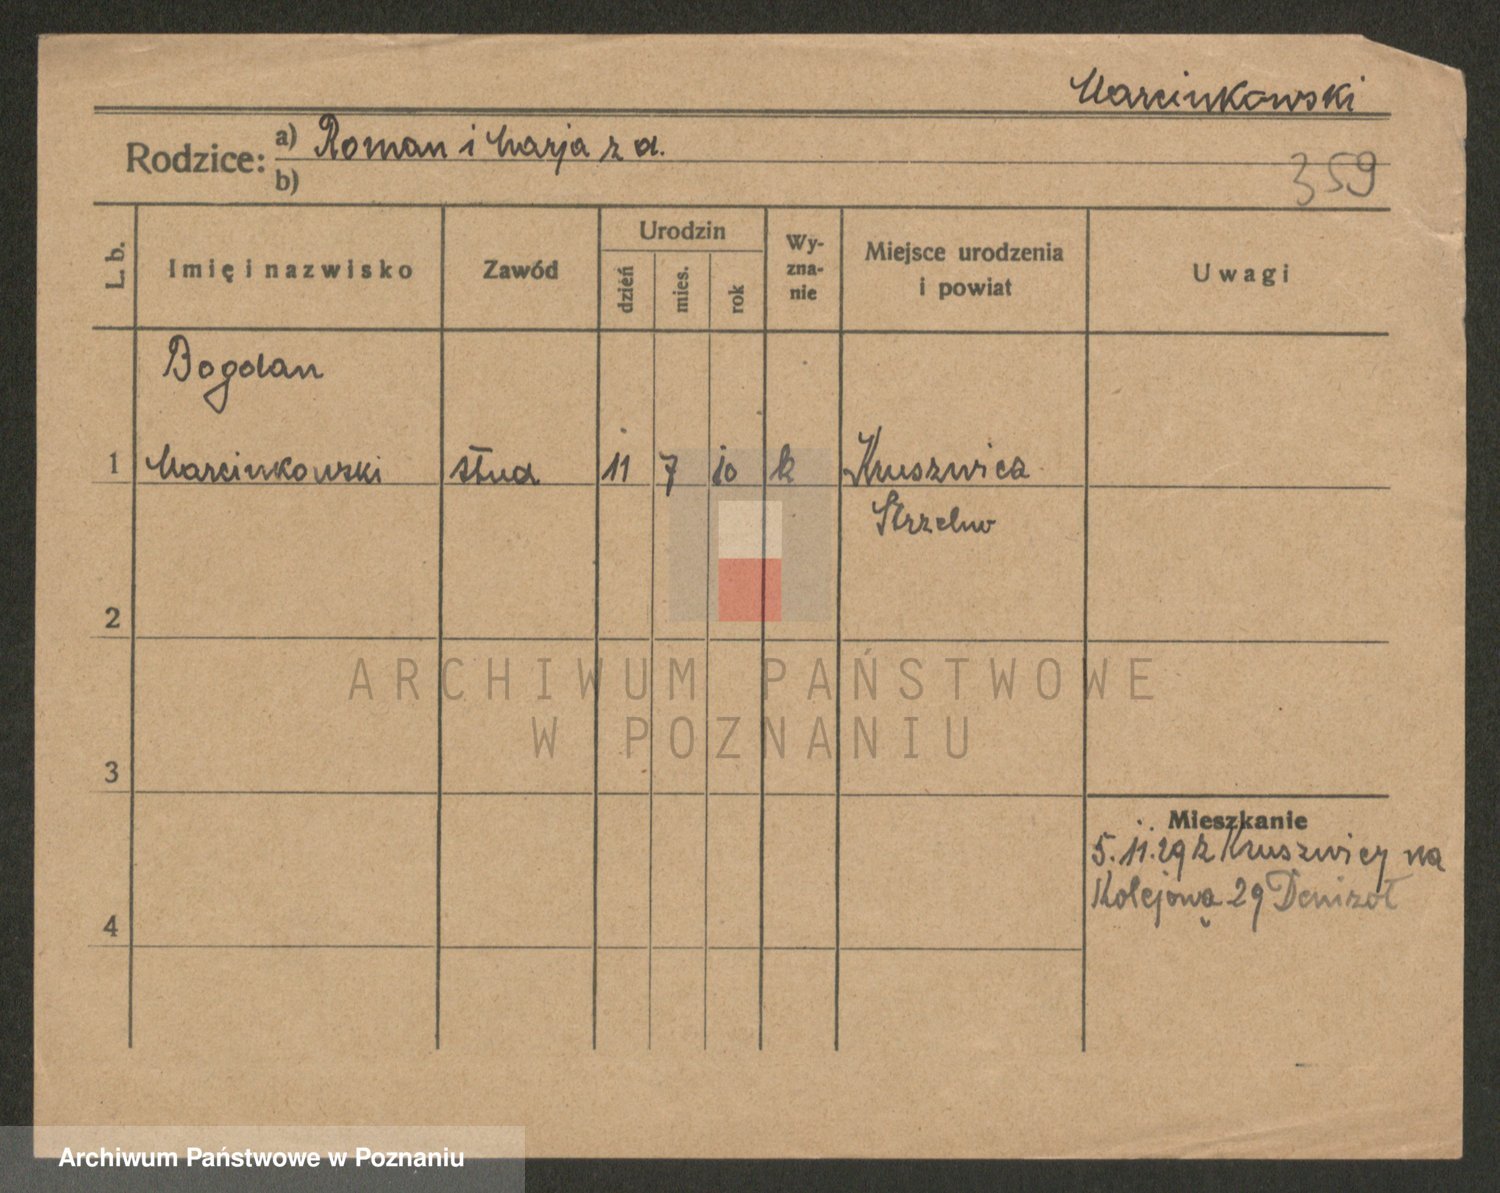 Marcinkowski
Rodzice: a) Roman i Marja z d.
b)
359
L. b.
Imię i nazwisko
Zawód
Urodzin
dzień
mies.
rok
Wy-
zna-
nie
Miejsce urodzenia
i powiat
Uwagi
Bogdan
1 Marcinkowski stud 11 7 10 k Kruszwica
Strzelno
2
3
4
Mieszkanie
5.11.29 z Kruszwicy na
Kolejową 29
ARCHIWUM PAŃSTWOWE
W POZNANIU
Archiwum Państwowe w Poznaniu